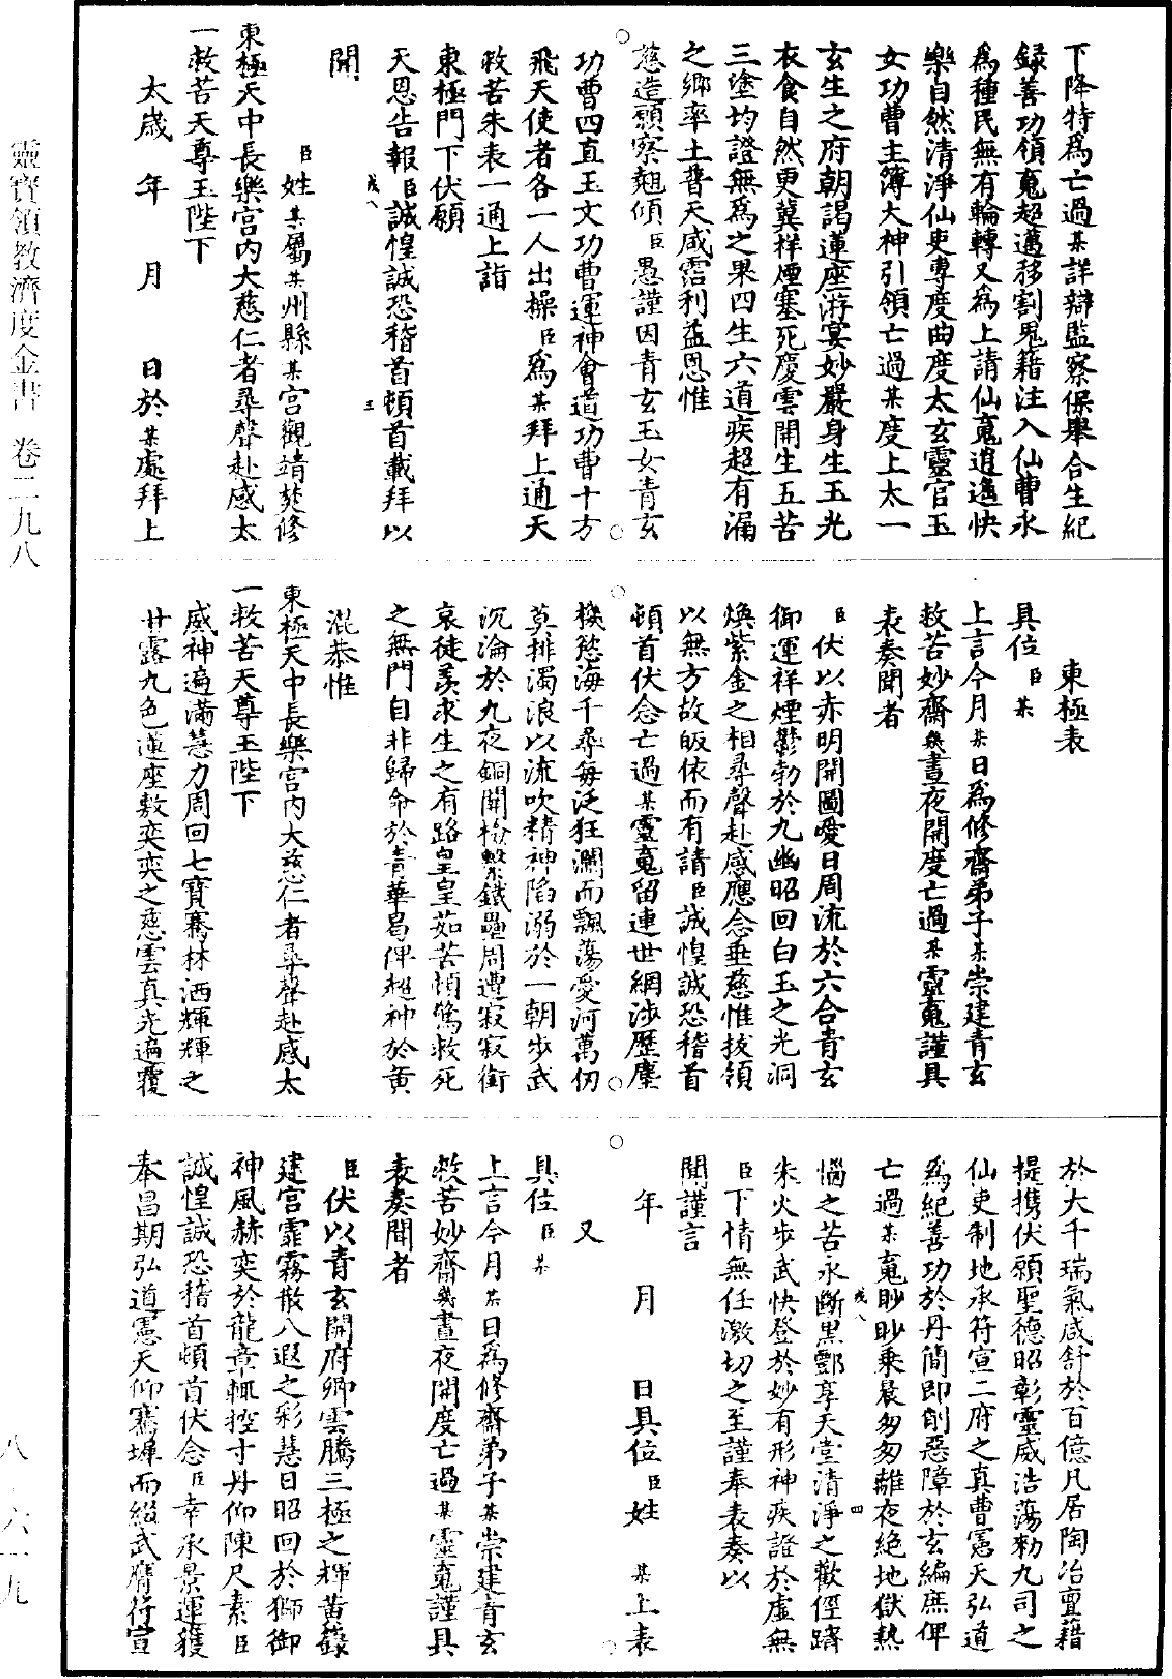 下降特為亡過某詳辯監察保舉合生紀
録善功領䰟超邁移割鬼籍注入仙曹永
為種民無有輪轉又為上請仙䰟逍遥快
樂自然清淨仙吏專度曲度太玄靈官玉
女功曹主簿大神引領亡過某度上太一
玄生之府朝謁蓮座游宴妙嚴身生玉光
衣食自然更冀祥煙塞死慶雲開生五苦
三塗均證無為之果四生六道疾超有漏
之鄉率土普天咸霑利益恩惟
慈造願察翹傾臣愚謹因青玄玉女青玄
功曹四直玉文功曹運神會道功曹十方
飛天使者各一人出操臣為某拜上通天
救苦朱表一通上詣
東極門下伏願
天恩告報臣誠惶誠恐稽首頓首載拜以
聞
戍八
三
臣姓某屬某州縣某宮觀靖焚修
東極天中長樂宮内大慈仁者尋聲赴感太
一救苦天尊玉陛下
太歲 年 月 日於某處拜上
東極表
具位臣某
上言今月某日為修齋弟子某崇建青玄
救苦妙齋幾晝夜開度亡過某靈䰟謹具
表奏聞者
臣伏以赤明開圖愛日周流於六合青玄
御運祥煙鬱勃於九幽昭回白玉之光洞
煥紫金之相尋聲赴感應念垂慈惟拔領
以無方故皈依而有請臣誠惶誠恐稽首
頓首伏念亡過某靈䰟留連世網涉歷塵
機慾海千尋每泛狂瀾而飄蕩愛河萬仞
莫排濁浪以流吹精神陷溺於一朝步武
沉淪於九夜銅關檢繫鐵壘周遭寂寂銜
哀徒羨求生之有路皇皇茹苦頓驚救死
之無門自非歸命於青華曷俾超神於黄
混恭惟
東極天中長樂宮内大慈仁者尋聲赴感太
一救苦天尊玉陛下
威神遍滿慧力周回七寶騫林洒輝輝之
甘露九色蓮座敷奕奕之慈雲真光遍覆
於大千瑞氣咸舒於百億凡居陶冶亶藉
提携伏願聖德昭彰靈威浩蕩勑九司之
仙吏制地承符宣二府之真曹憲天弘道
為紀善功於丹簡即削惡障於玄編庶俾
亡過某䰟眇眇乗晨匆匆離夜絶地獄熱
惱之苦永斷黒酆享天堂清淨之歡徑躋
朱火步武快登於妙有形神疾證於虚無
戍八
四
臣下情無任激切之至謹奉表奏以
聞謹言
年 月 日具位臣姓 某上表
又
具位臣某
上言今月某日為修齋弟子某崇建青玄
救苦妙齋幾晝夜開度亡過某靈䰟謹具
表奏聞者
臣伏以青玄開府卿雲騰三極之輝黄籙
建宮霏霧散八遐之彩慧日昭回於獅御
神風赫奕於龍章輒控寸丹仰陳尺素臣
誠惶誠恐稽首頓首伏念臣幸承景運獲
奉昌期弘道憲天仰騫墀而緝武膺符宣
靈寶領教濟度金書 卷二九八
八－六一九